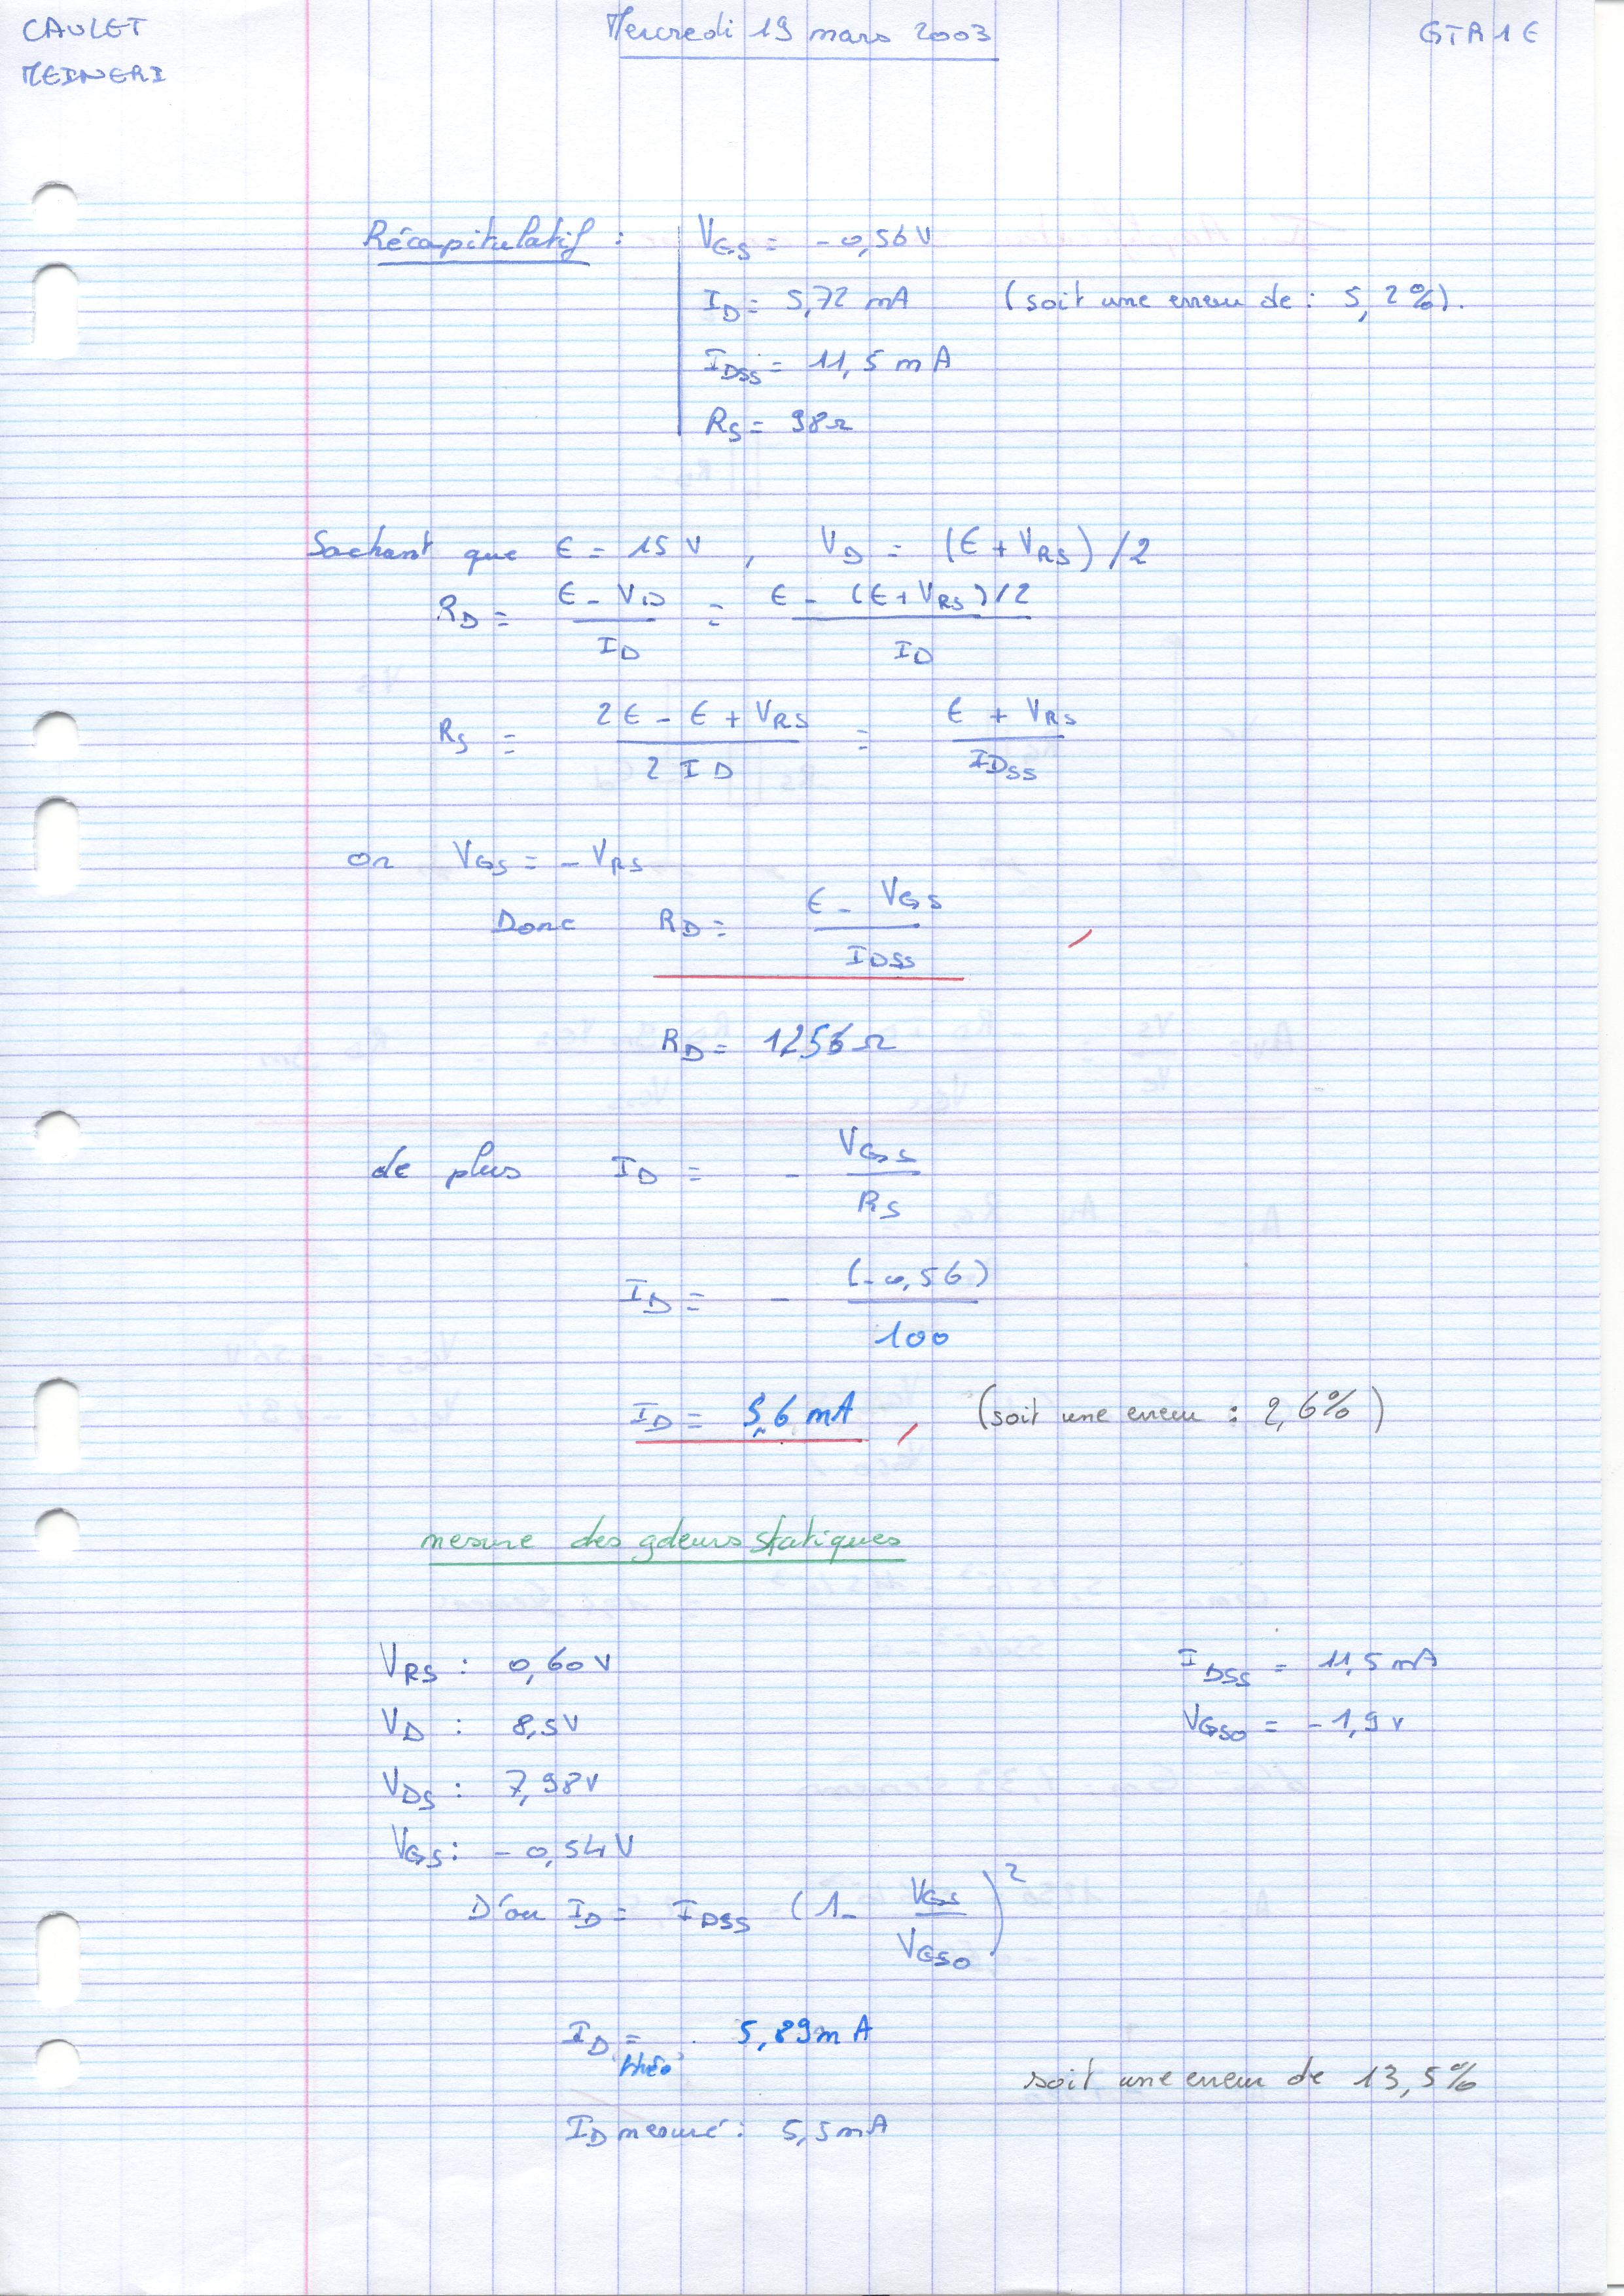 CAULET Mercredi 19 mars 2003 GTR1E
MEINERI
Récapitulatif : VGS = -0,56 V
ID = 5,72 mA (soit une erreur de : 5,2%).
IDSS = 11,5 mA
RS = 98Ω
Sachant que E = 15 V , VD = (E + VRS) /2
RD = (E - VD) / ID = (E - (E + VRS)/2) / ID
RS = (2E - E + VRS) / (2 ID) = (E + VRS) / IDSS
or VGS = - VRS
Donc RD = (E - VGS) / IDSS
RD = 1256 Ω
de plus ID = - VGS / RS
ID = - (-0,56) / 100
ID = 5,6 mA (soit une erreur : 2,6%)
mesure des gdeurs statiques
VRS : 0,60 V IDSS = 11,5 mA
VD : 8,5V VGSO = -1,9 v
VDS : 7,98V
VGS : -0,54 V
D'où ID = IDSS (1 - VGS / VGSO)²
ID théo = 5,89 mA
soit une erreur de 13,5%
ID mesuré : 5,5 mA